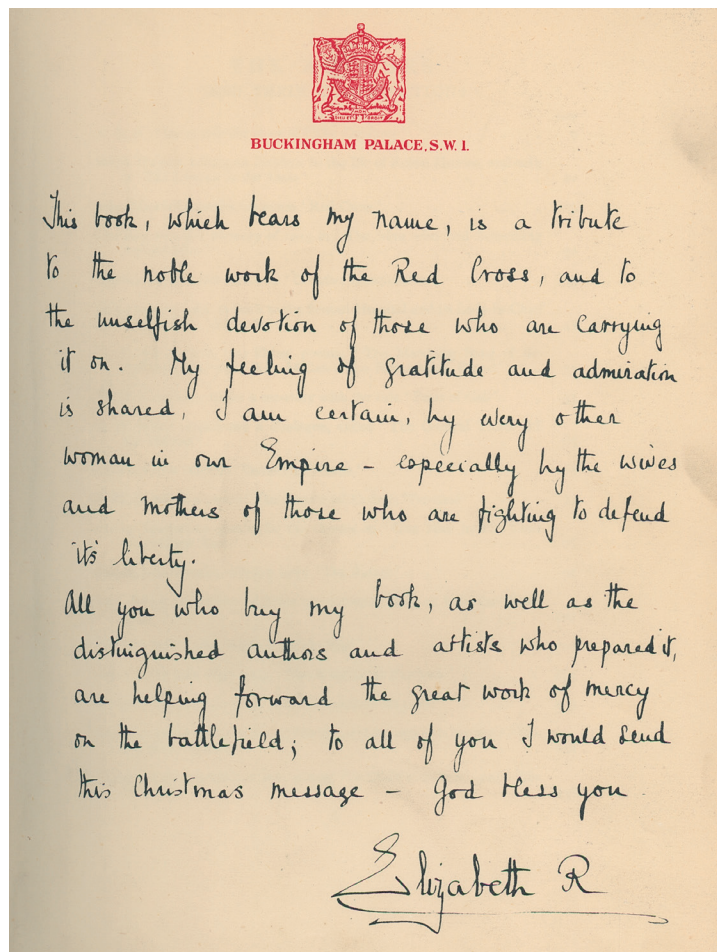 DIEU ET MON DROIT
BUCKINGHAM PALACE, S.W. 1.
This book, which bears my name, is a tribute
to the noble work of the Red Cross, and to
the unselfish devotion of those who are carrying
it on. My feeling of gratitude and admiration
is shared, I am certain, by every other
woman in our Empire – especially by the wives
and mothers of those who are fighting to defend
it's liberty.
All you who buy my book, as well as the
distinguished authors and artists who prepared it,
are helping forward the great work of mercy
on the battlefield; to all of you I would send
this Christmas message – God bless you
Elizabeth R